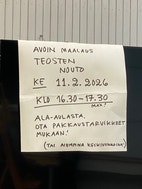 AVOIN MAALAUS
TEOSTEN
NOUTO
KE 11.2.2026
KLO 16.30-17.30
ALA-AULASTA.
OTA PAKKAUSTARVIKKEET
MUKAAN!
(TAI AIEMMINA KESKIVIIKKOINA)